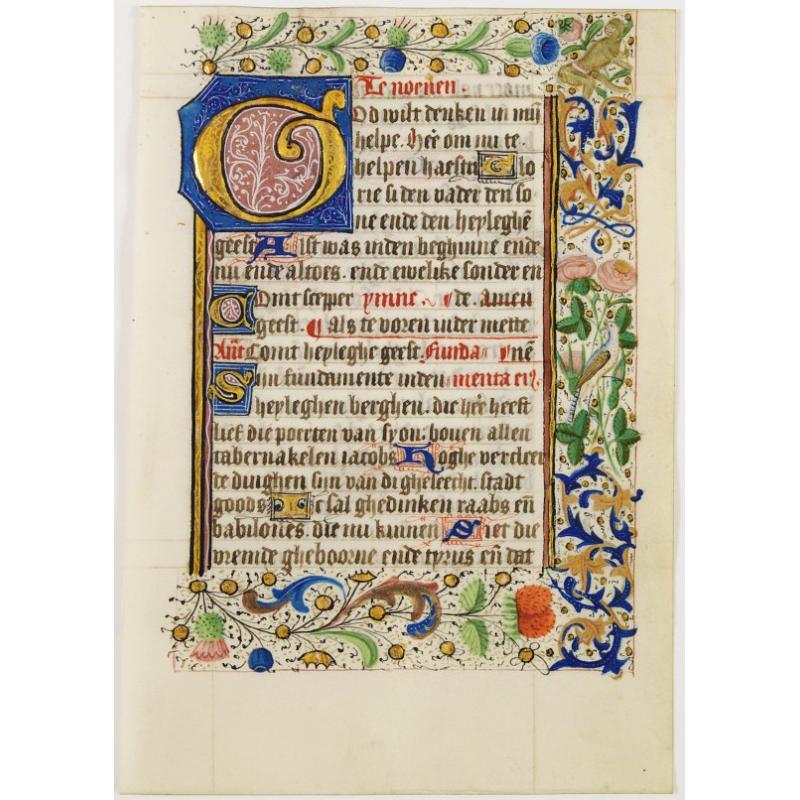 Te noenen.
God wilt denken in mÿ
helpe. Hee͛ om mi te
helpen haesti Glo
rie si den vader den so
ne ende den heyleghē
geest Alst was inden beghinne ende
nu ende altoes. ende ewelike sonder en
Comt scepper ymne de. amen
geest. als te voren inder mette
Añt Comt heyleghe geest. Funda ꝑnē
Sijn fundamente inden menta eiꝰ
heyleghen berghen. die hee͛ heeft
lief die poerten van syon: bouen allen
tabernakelen iacobs Hoghe vercleer
te dinghen sijn van di gheseecht. stadt
goods Ic sal ghedinken raabs eñ
babilones. die mi kinnen Siet die
vremde gheboorne ende tyrus eñ dat